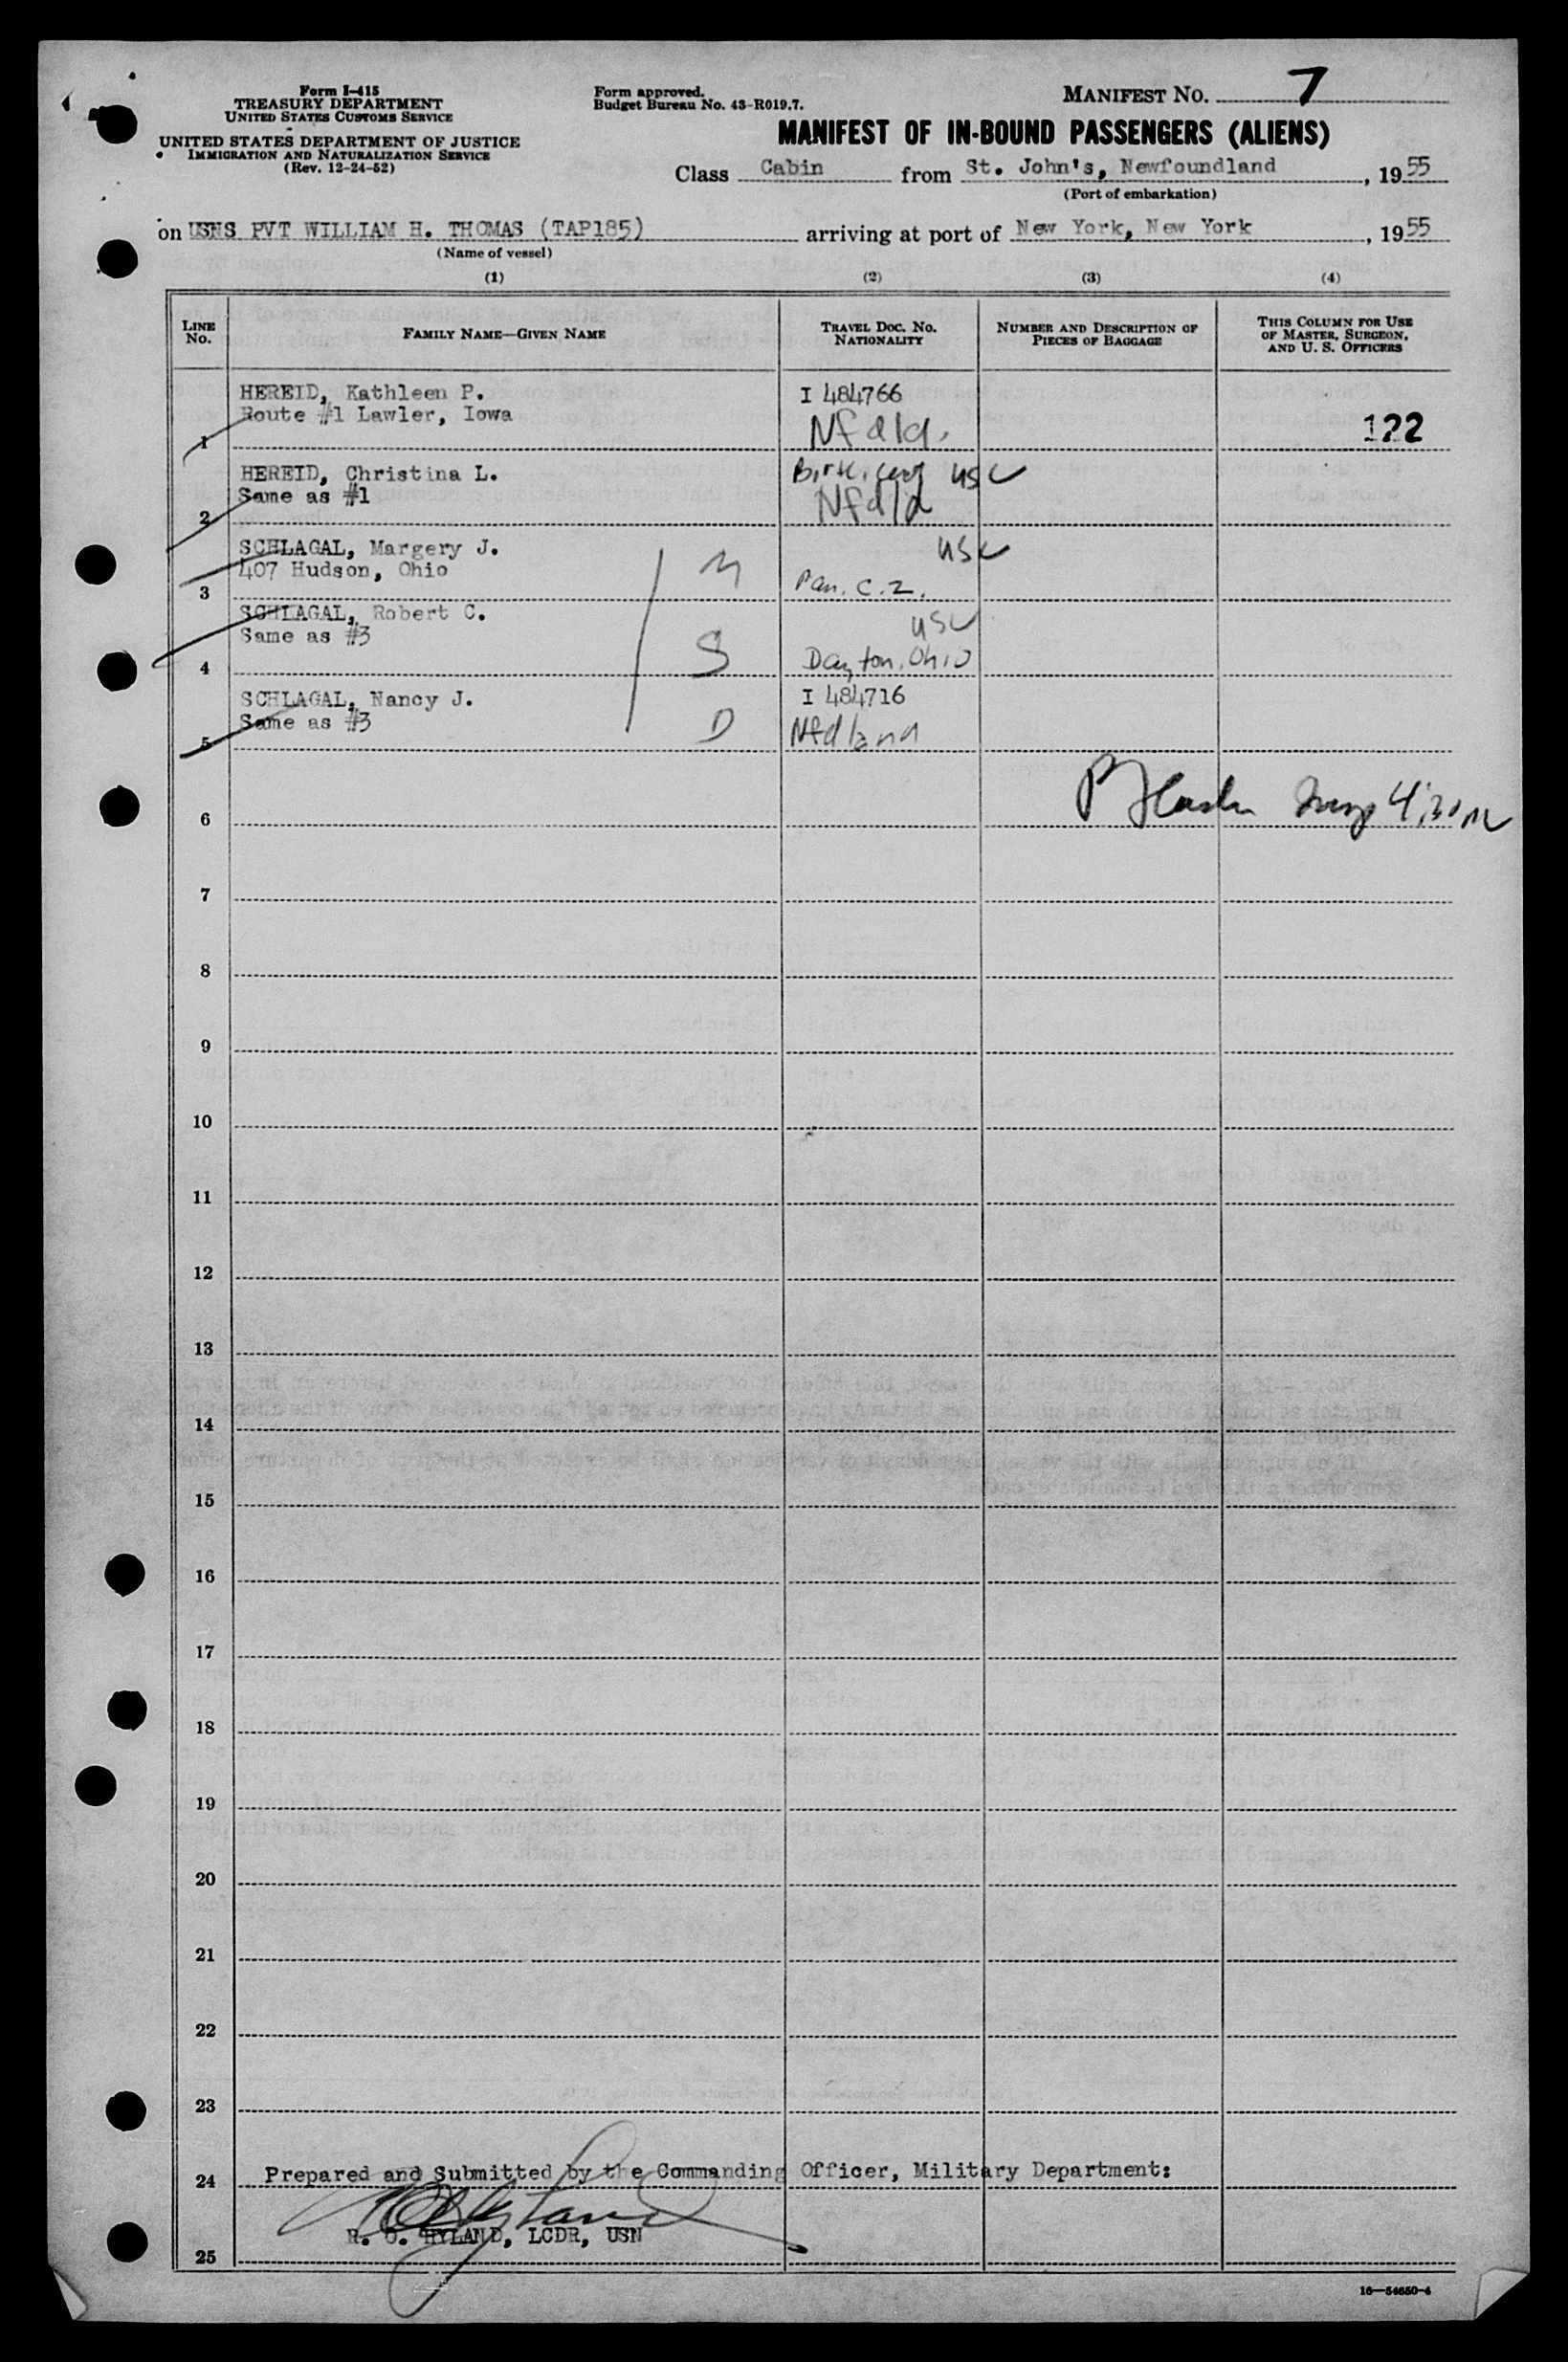 Form I-415
TREASURY DEPARTMENT
UNITED STATES CUSTOMS SERVICE
UNITED STATES DEPARTMENT OF JUSTICE
IMMIGRATION AND NATURALIZATION SERVICE
(Rev. 12-24-52)
Form approved.
Budget Bureau No. 43-R019.7.
MANIFEST NO. 7
MANIFEST OF IN-BOUND PASSENGERS (ALIENS)
Class Cabin from St. John's, Newfoundland, 1955
(Port of embarkation)
on USNS PVT WILLIAM H. THOMAS (TAP185) arriving at port of New York, New York, 1955
(Name of vessel)
(1) (2) (3) (4)
LINE NO.
FAMILY NAME—GIVEN NAME
TRAVEL DOC. NO. NATIONALITY
NUMBER AND DESCRIPTION OF PIECES OF BAGGAGE
THIS COLUMN FOR USE OF MASTER, SURGEON, AND U. S. OFFICERS
HEREID, Kathleen P. I 484766
Route #1 Lawler, Iowa Nfdld. 122
1
HEREID, Christina L. Birth. USC
Same as #1 Nfdld
2
SCHLAGAL, Margery J. M USC
407 Hudson, Ohio Pan. C.Z.
3
SCHLAGAL, Robert C. USC
Same as #3 S Dayton, Ohio
4
SCHLAGAL, Nancy J. I 484716
Same as #3 D Nfdland
5
6
7
8
9
10
11
12
13
14
15
16
17
18
19
20
21
22
23
24 Prepared and Submitted by the Commanding Officer, Military Department:
R. O. HYLAND, LCDR, USN
25
16—54650-4